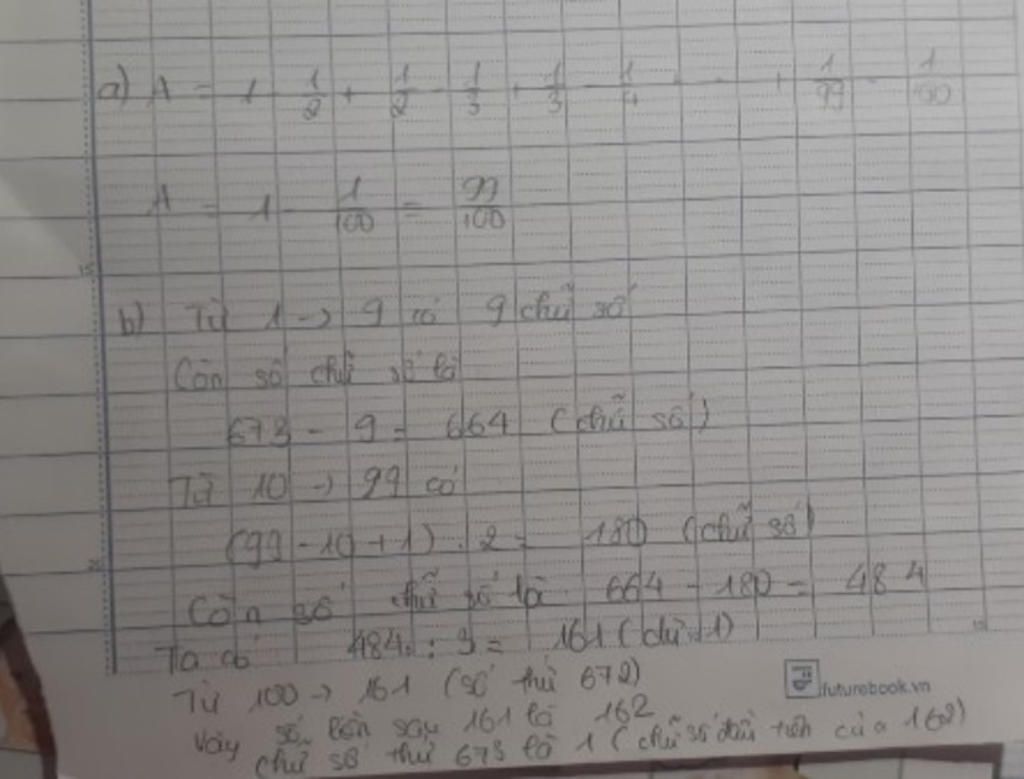 a) A = 1 - 1/2 + 1/2 - 1/3 + 1/3 - 1/4 + - - + 1/99 - 1/100
A = 1 - 1/100 = 99/100
15
b) Từ 1 → 9 có 9 chữ số
Còn số chữ số là
673 - 9 = 664 (chữ số)
Từ 10 → 99 có
(99 - 10 + 1) . 2 = 180 (chữ số)
20
Còn số chữ số là 664 - 180 = 484
Ta có 484 : 3 = 161 (dư 1)
Từ 100 → 161 (số thứ 672)
futurebook.vn
số liền sau 161 là 162
Vậy chữ số thứ 673 là 1 (chữ số đầu tiên của 162)